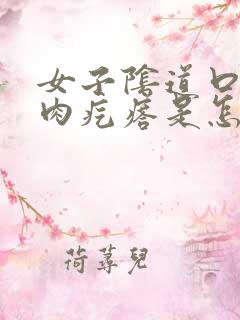 女子陰道口
肉疙瘩是怎
荷蕁兒